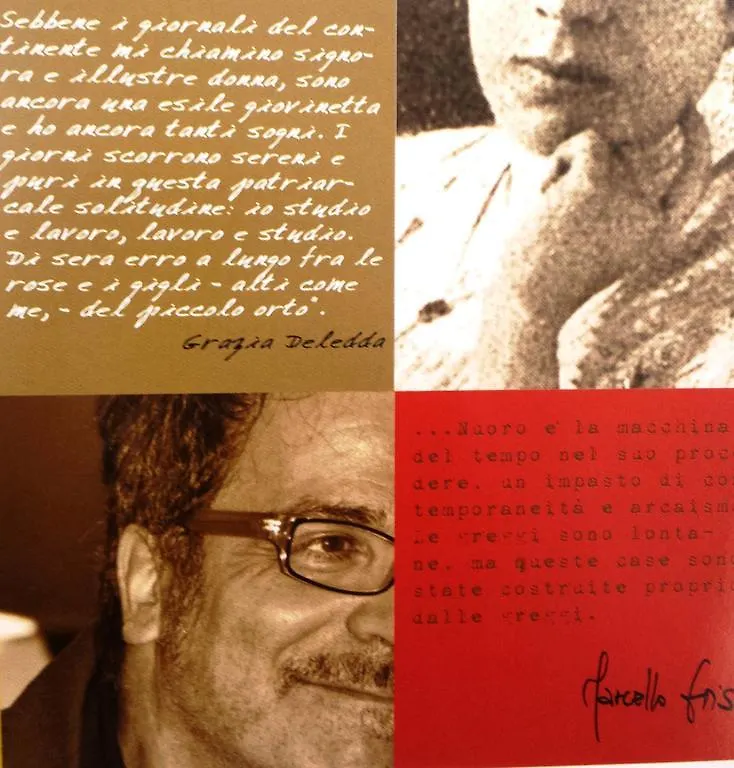 Sebbene i giornali del con-
tinente mi chiamino signo-
ra e illustre donna, sono
ancora una esile giovinetta
e ho ancora tanti sogni. I
giorni scorrono sereni e
puri in questa patriar-
cale solitudine: io studio
e lavoro, lavoro e studio.
Di sera erro a lungo fra le
rose e i gigli - alti come
me, - del piccolo orto".
Grazia Deledda
...Nuoro e' la macchina
del tempo nel suo proce
dere, un impasto di con
temporaneità e arcaismo
Le greggi sono lonta-
ne, ma queste case sono
state costruite proprio
dalle greggi.
Marcello Fois